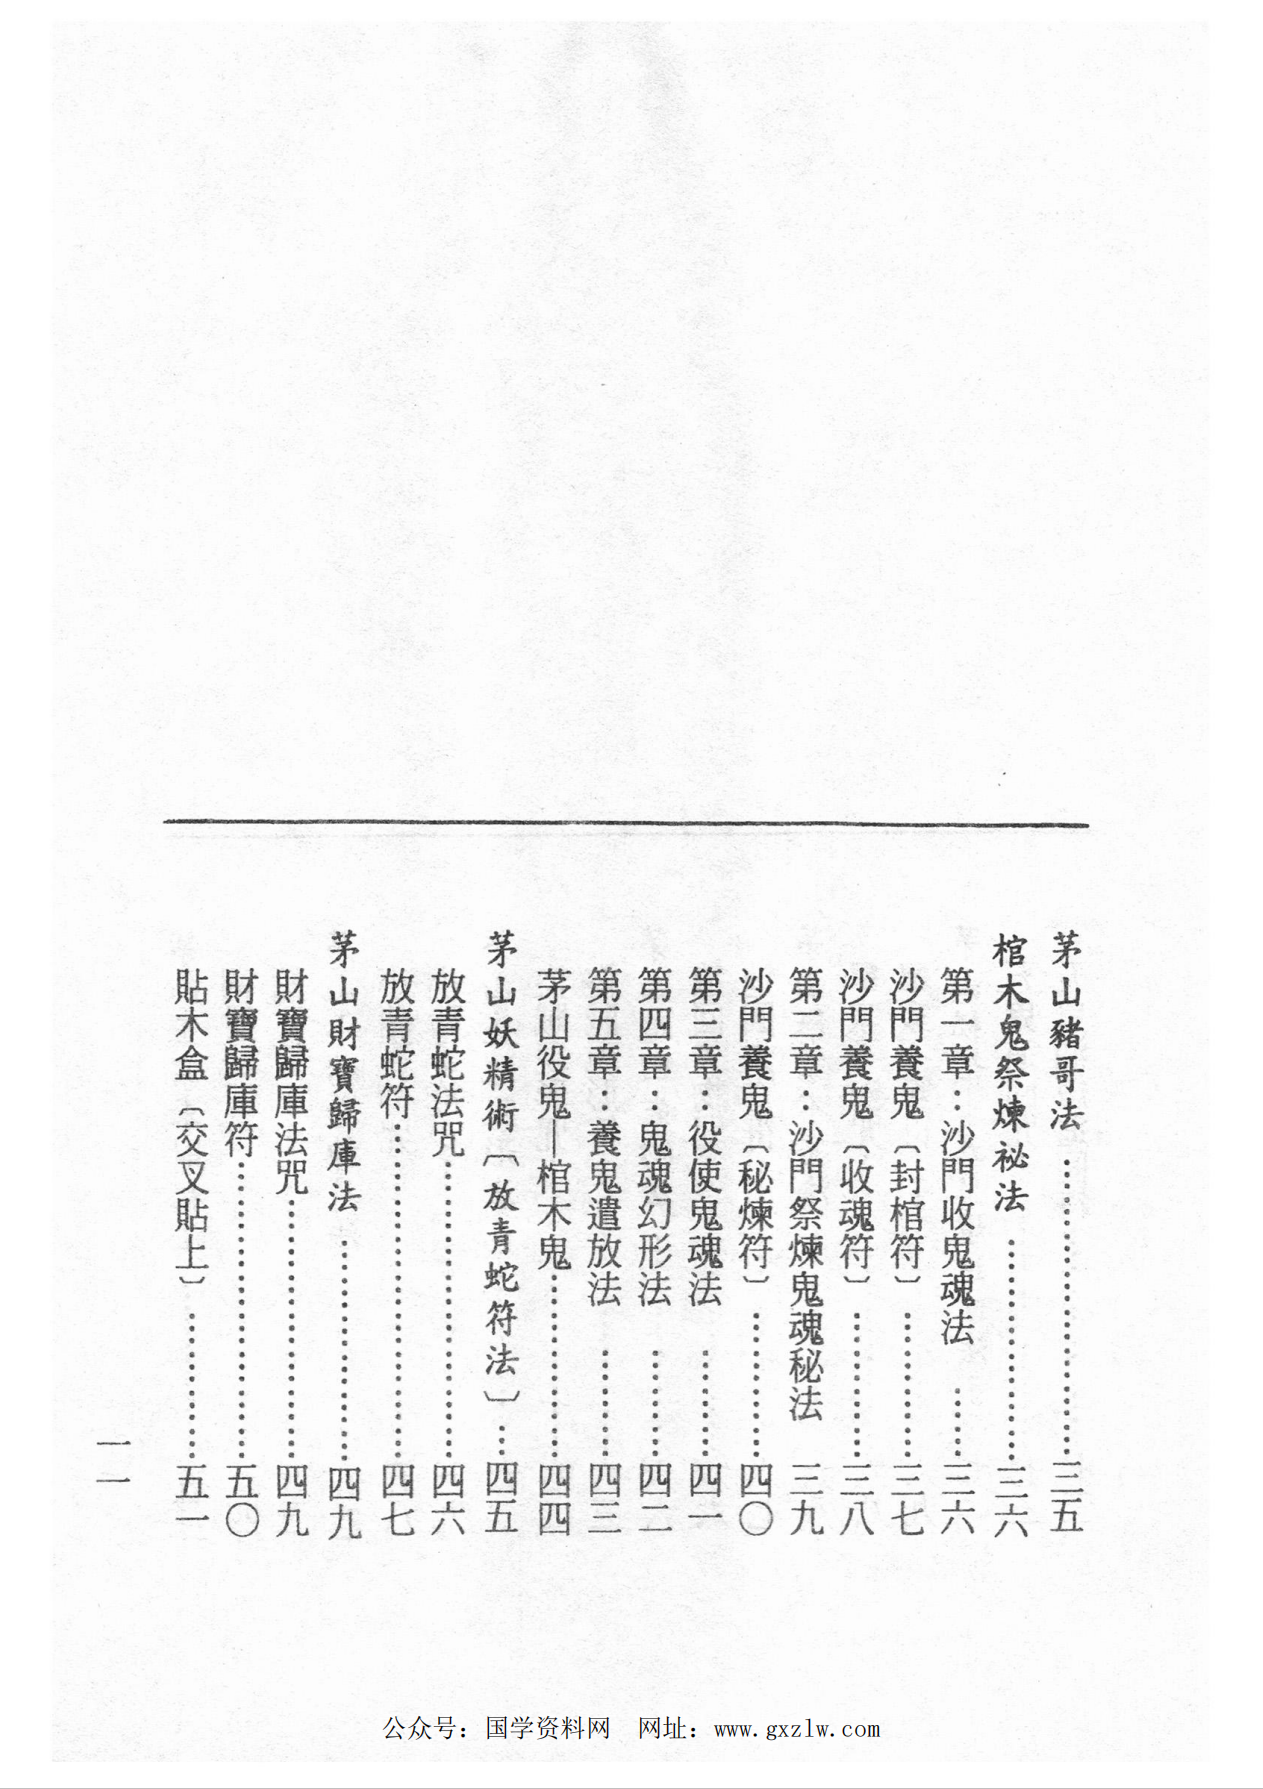 茅山豬哥法……………………三五
棺木鬼祭煉祕法………………三六
第一章：沙門收鬼魂法……三六
沙門養鬼〔封棺符〕…………三七
沙門養鬼〔收魂符〕…………三八
第二章：沙門祭煉鬼魂秘法三九
沙門養鬼〔秘煉符〕…………四〇
第三章：役使鬼魂法………四一
第四章：鬼魂幻形法………四二
第五章：養鬼遣放法………四三
茅山役鬼—棺木鬼……………四四
茅山妖精術〔放青蛇符法〕…四五
放青蛇法咒……………………四六
放青蛇符………………………四七
茅山財寶歸庫法………………四九
財寶歸庫法咒…………………四九
財寶歸庫符……………………五〇
貼木盒〔交叉貼上〕…………五一
一一
公众号：国学资料网　网址：www.gxzlw.com